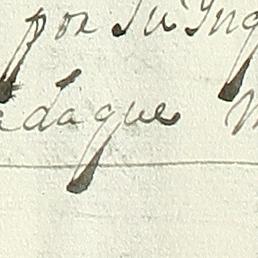 por Su Ing
adaques